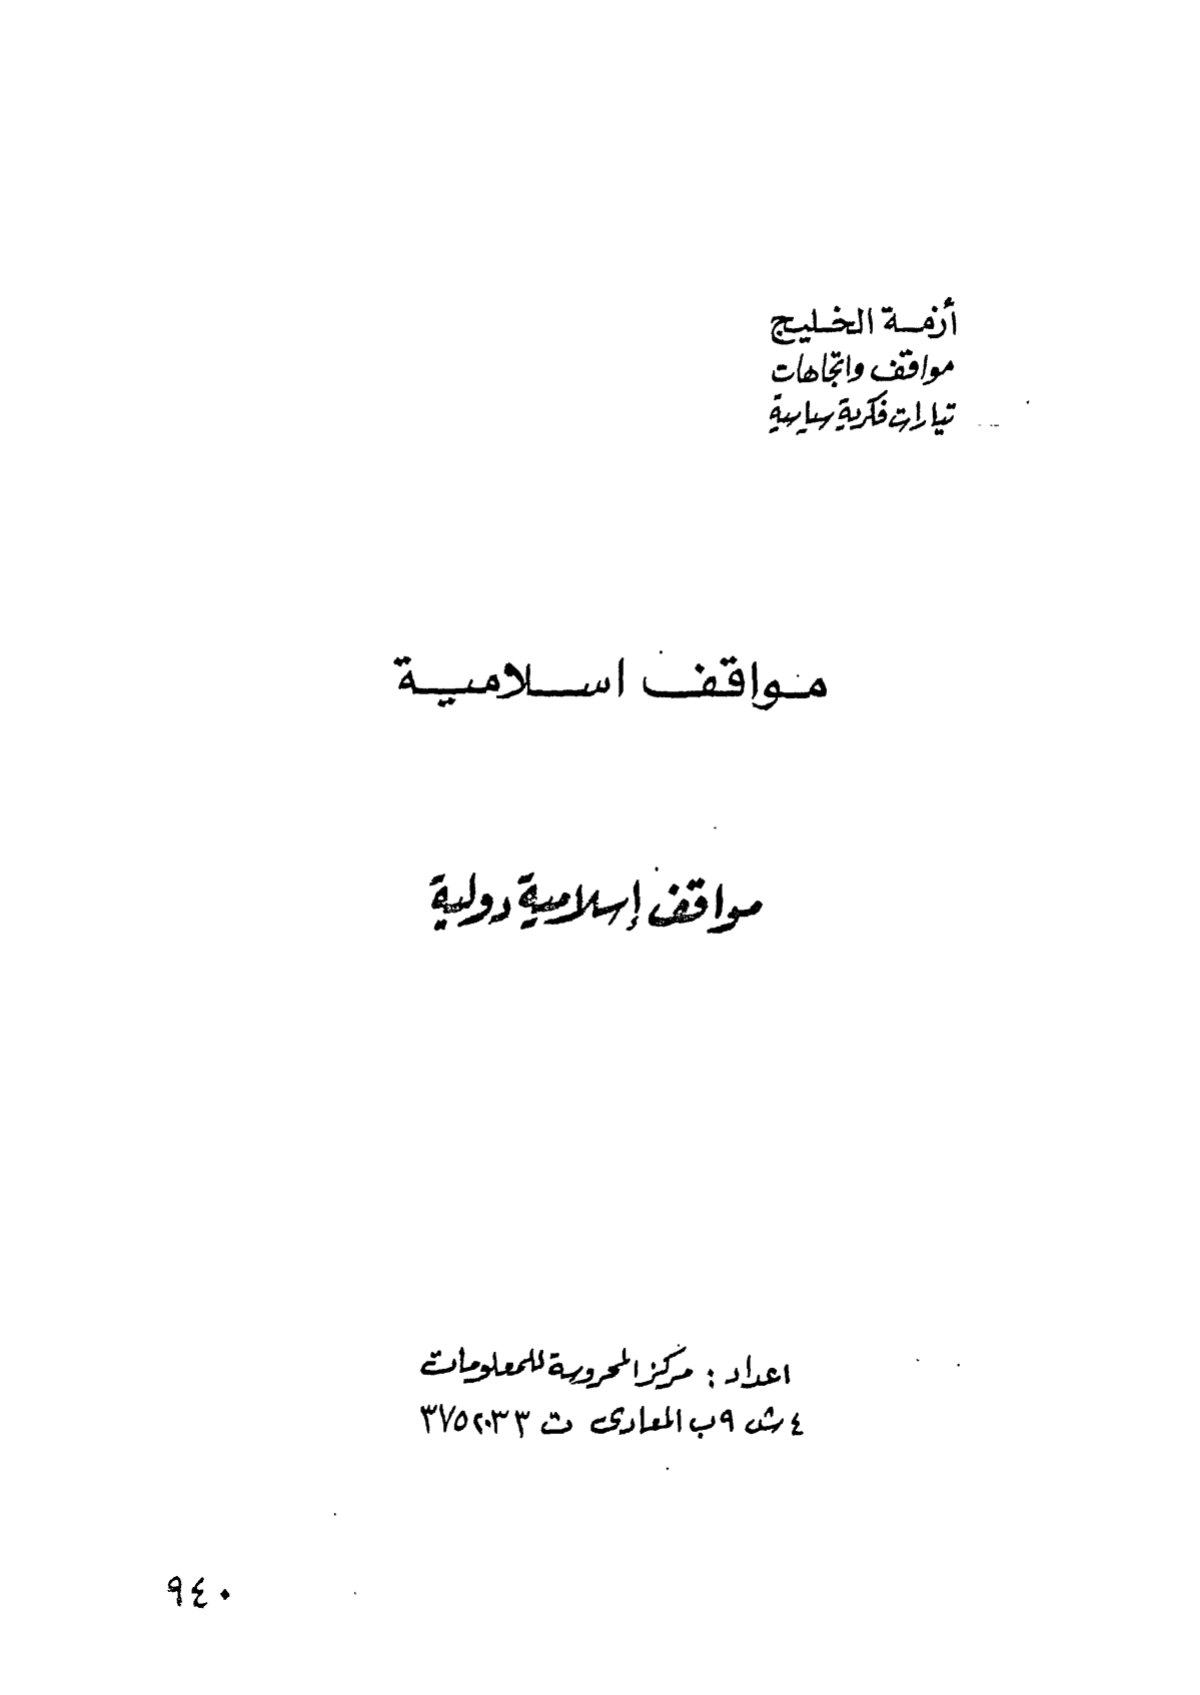 أزمة الخليج
مواقف واتجاهات
تيارات فكرية سياسية
مواقف اسلامية
مواقف إسلامية دولية
اعداد : مركز المحروسة للمعلومات
٤ ش ٩ب المعادى ت ٣٧٥٢٠٣٣
٩٤٠